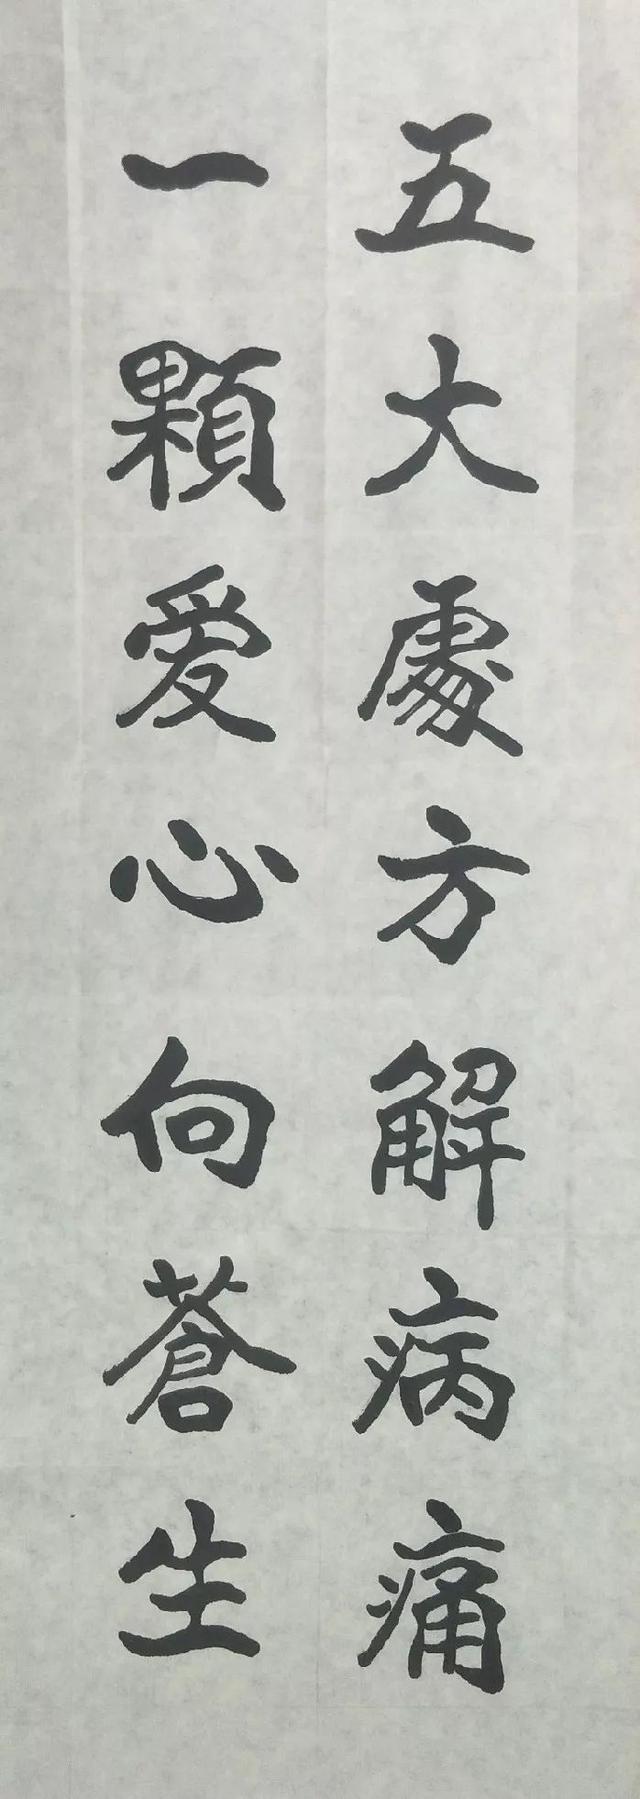 五大處方解病痛
一顆爱心向蒼生